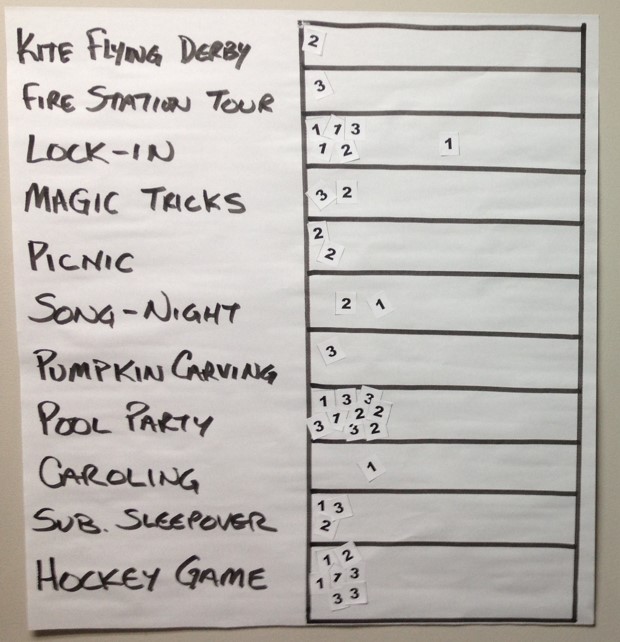 KITE FLYING DERBY 2
FIRE STATION TOUR 3
LOCK-IN 1 1 3 1 2 1
MAGIC TRICKS 3 2
PICNIC 2 2
SONG-NIGHT 2 1
PUMPKIN CARVING 3
POOL PARTY 1 3 3 3 1 2 2 3 2
CAROLING 1
SUB. SLEEPOVER 1 3 2
HOCKEY GAME 1 2 1 1 3 3 3